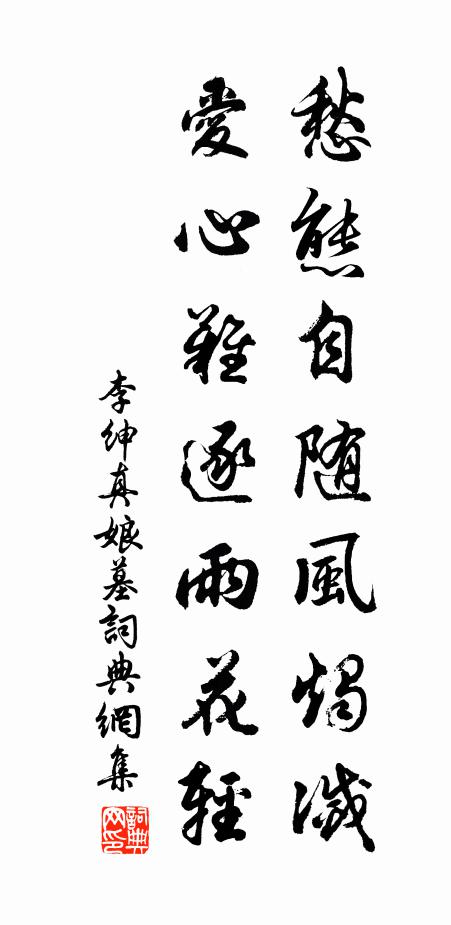 愁態自随風燭滅
愛心難逐雨花輕
李紳真娘墓詞典網集
詞典网印